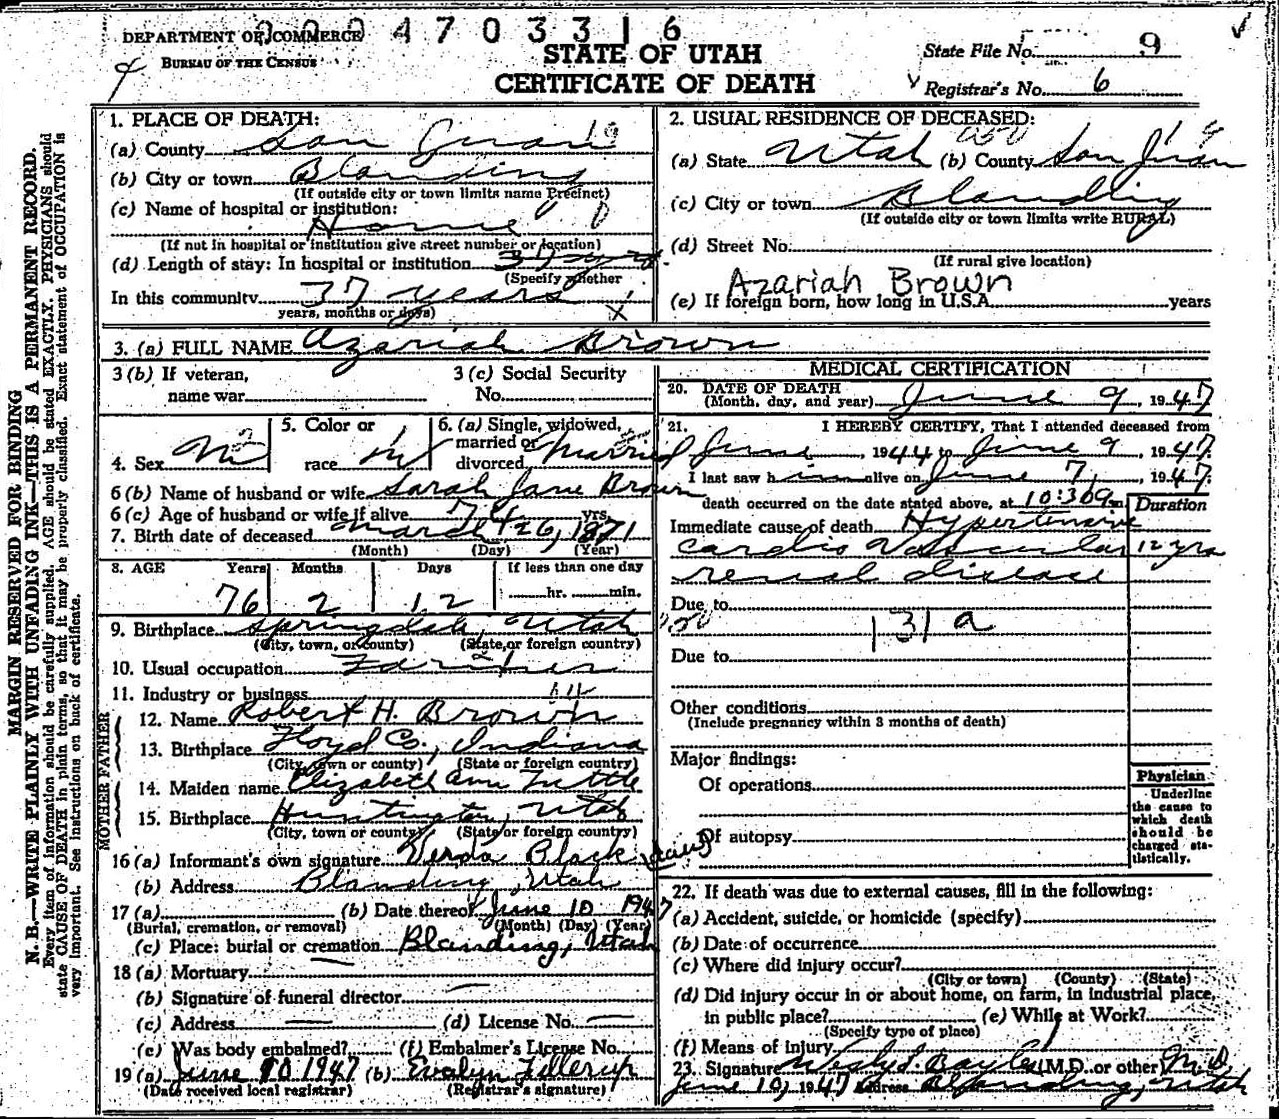 DEPARTMENT OF COMMERCE
BUREAU OF THE CENSUS
4 7 0 3 3 1 6
STATE OF UTAH
CERTIFICATE OF DEATH
State File No. 9
Registrar's No. 6
MARGIN RESERVED FOR BINDING
N. B.—WRITE PLAINLY WITH UNFADING INK—THIS IS A PERMANENT RECORD.
Every item of information should be carefully supplied. AGE should be stated EXACTLY. PHYSICIANS should
state CAUSE OF DEATH in plain terms, so that it may be properly classified. Exact statement of OCCUPATION is
very important. See instructions on back of certificate.
1. PLACE OF DEATH:
(a) County San Juan
(b) City or town Blanding
(If outside city or town limits name Precinct)
(c) Name of hospital or institution:
Home
(If not in hospital or institution give street number or location)
(d) Length of stay: In hospital or institution 37 yrs.
(Specify whether
In this community 37 years
years, months or days)
2. USUAL RESIDENCE OF DECEASED:
(a) State Utah (b) County San Juan
(c) City or town Blanding
(If outside city or town limits write RURAL)
(d) Street No.
(If rural give location)
Azariah Brown
(e) If foreign born, how long in U.S.A. years
3. (a) FULL NAME Azariah Brown
3 (b) If veteran,
name war
3 (c) Social Security
No.
4. Sex M
5. Color or
race W
6. (a) Single, widowed,
married or
divorced Married
6 (b) Name of husband or wife Sarah Jane Brown
6 (c) Age of husband or wife if alive 74 yrs.
7. Birth date of deceased March 26, 1871
(Month) (Day) (Year)
8. AGE Years Months Days If less than one day
76 2 12 hr. min.
9. Birthplace Springdale, Utah
(City, town, or county) (State or foreign country)
10. Usual occupation Farmer
11. Industry or business
FATHER
12. Name Robert H. Brown
13. Birthplace Floyd Co., Indiana
(City, town or county) (State or foreign country)
MOTHER
14. Maiden name Elizabeth Ann Tuttle
15. Birthplace Huntington, Utah
(City, town or county) (State or foreign country)
16 (a) Informant's own signature Verda Black
(b) Address Blanding, Utah
17 (a) (b) Date thereof June 10 1947
(Burial, cremation, or removal) (Month) (Day) (Year)
(c) Place: burial or cremation Blanding, Utah
18 (a) Mortuary
(b) Signature of funeral director
(c) Address (d) License No.
(e) Was body embalmed? (f) Embalmer's License No.
19 (a) June 10 1947 (b) Evalyn Tillerup
(Date received local registrar) (Registrar's signature)
MEDICAL CERTIFICATION
20. DATE OF DEATH
(Month, day, and year) June 9, 1947
21. I HEREBY CERTIFY, That I attended deceased from
June, 1944 to June 9, 1947.
I last saw him alive on June 7, 1947.
death occurred on the date stated above, at 10:30 a.m. Duration
Immediate cause of death Hypertensive
cardio vascular 12 yrs
renal disease
Due to
131a
Due to
Other conditions
(Include pregnancy within 3 months of death)
Major findings:
Of operations
Of autopsy
Physician
Underline
the cause to
which death
should be
charged sta-
tistically.
22. If death was due to external causes, fill in the following:
(a) Accident, suicide, or homicide (specify)
(b) Date of occurrence
(c) Where did injury occur?
(City or town) (County) (State)
(d) Did injury occur in or about home, on farm, in industrial place,
in public place? (e) While at Work?
(Specify type of place)
(f) Means of injury
23. Signature (M.D. or other) M.D.
June 10, 1947 Address Blanding, Utah